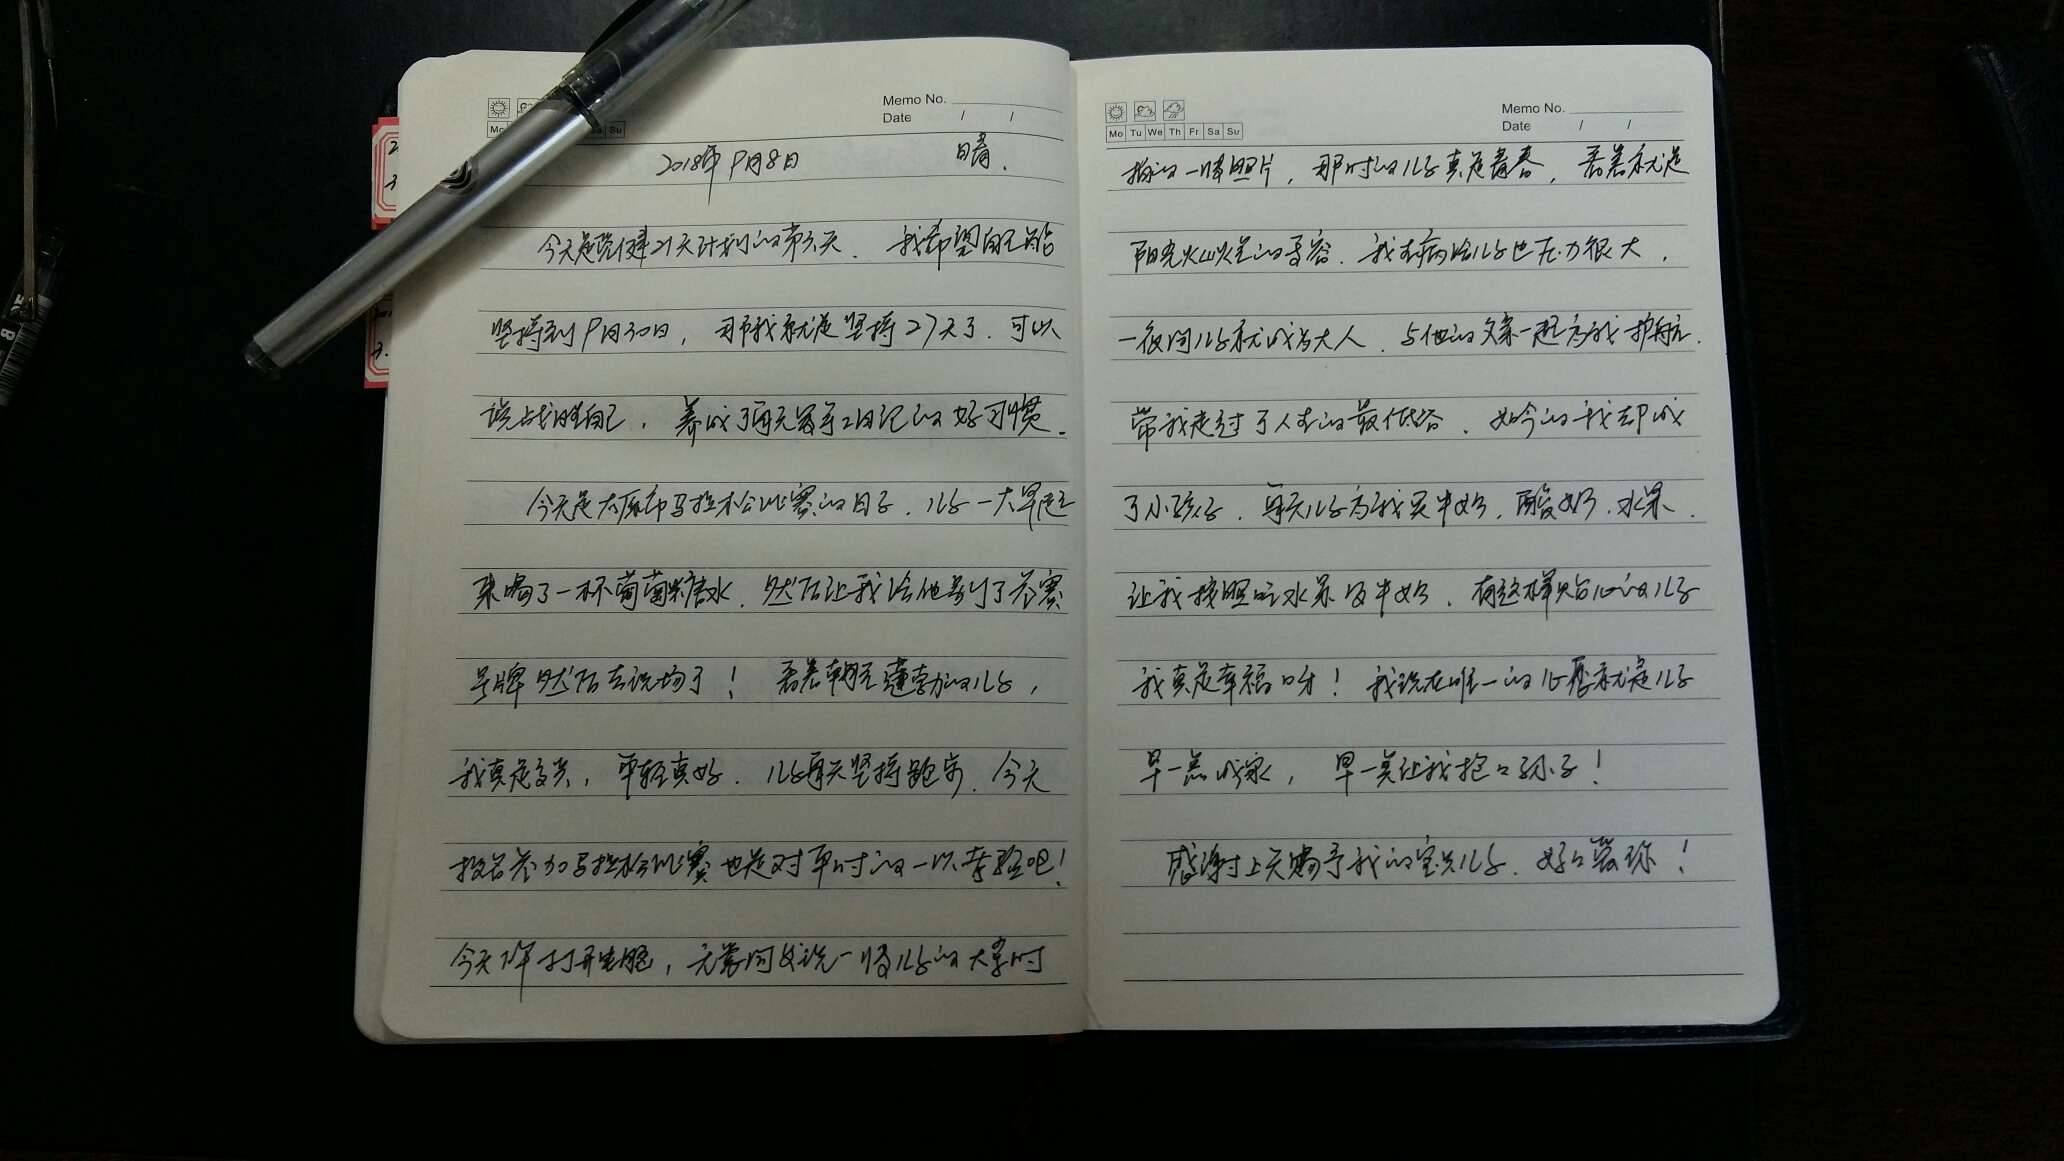 Memo No.
Date / /
Mo Sa Su
2018年9月8日 晴.
今天是 21天计划的第六天. 我希望自己能
坚持到9月30日, 那我就是坚持27天了. 可以
说战胜自己, 养成了每天写手工日记的好习惯.
今天是太原市马拉松比赛的日子. 儿子一大早起
来喝了一杯葡萄糖水. 然后让我给他别了参赛
号牌然后去现场了! 看着朝气蓬勃的儿子,
我真是 , 年轻真好. 儿子每天坚持跑步. 今天
报名参加马拉松比赛也是对平时的一次考验吧!
今天 打开电脑, 无意间发现一张儿子的大学时
Memo No.
Date / /
Mo Tu We Th Fr Sa Su
拍的一张照片, 那时的儿子真是青春, 看着就是
阳光灿烂的 容. 我生病给儿子也压力很大.
一夜间儿子就成为大人. 与他的父亲一起为我护航.
带我走过了人生的最低谷. 如今的我却成
了小孩子. 每天儿子为我买牛奶. 酸奶. 水果.
让我按照吃水果及牛奶. 有这样贴心的儿子
我真是幸福呀! 我现在唯一的心愿就是儿子
早一点成家, 早一点让我抱上孙子!
感谢上天赐予我的宝贝儿子. 妈妈爱你!